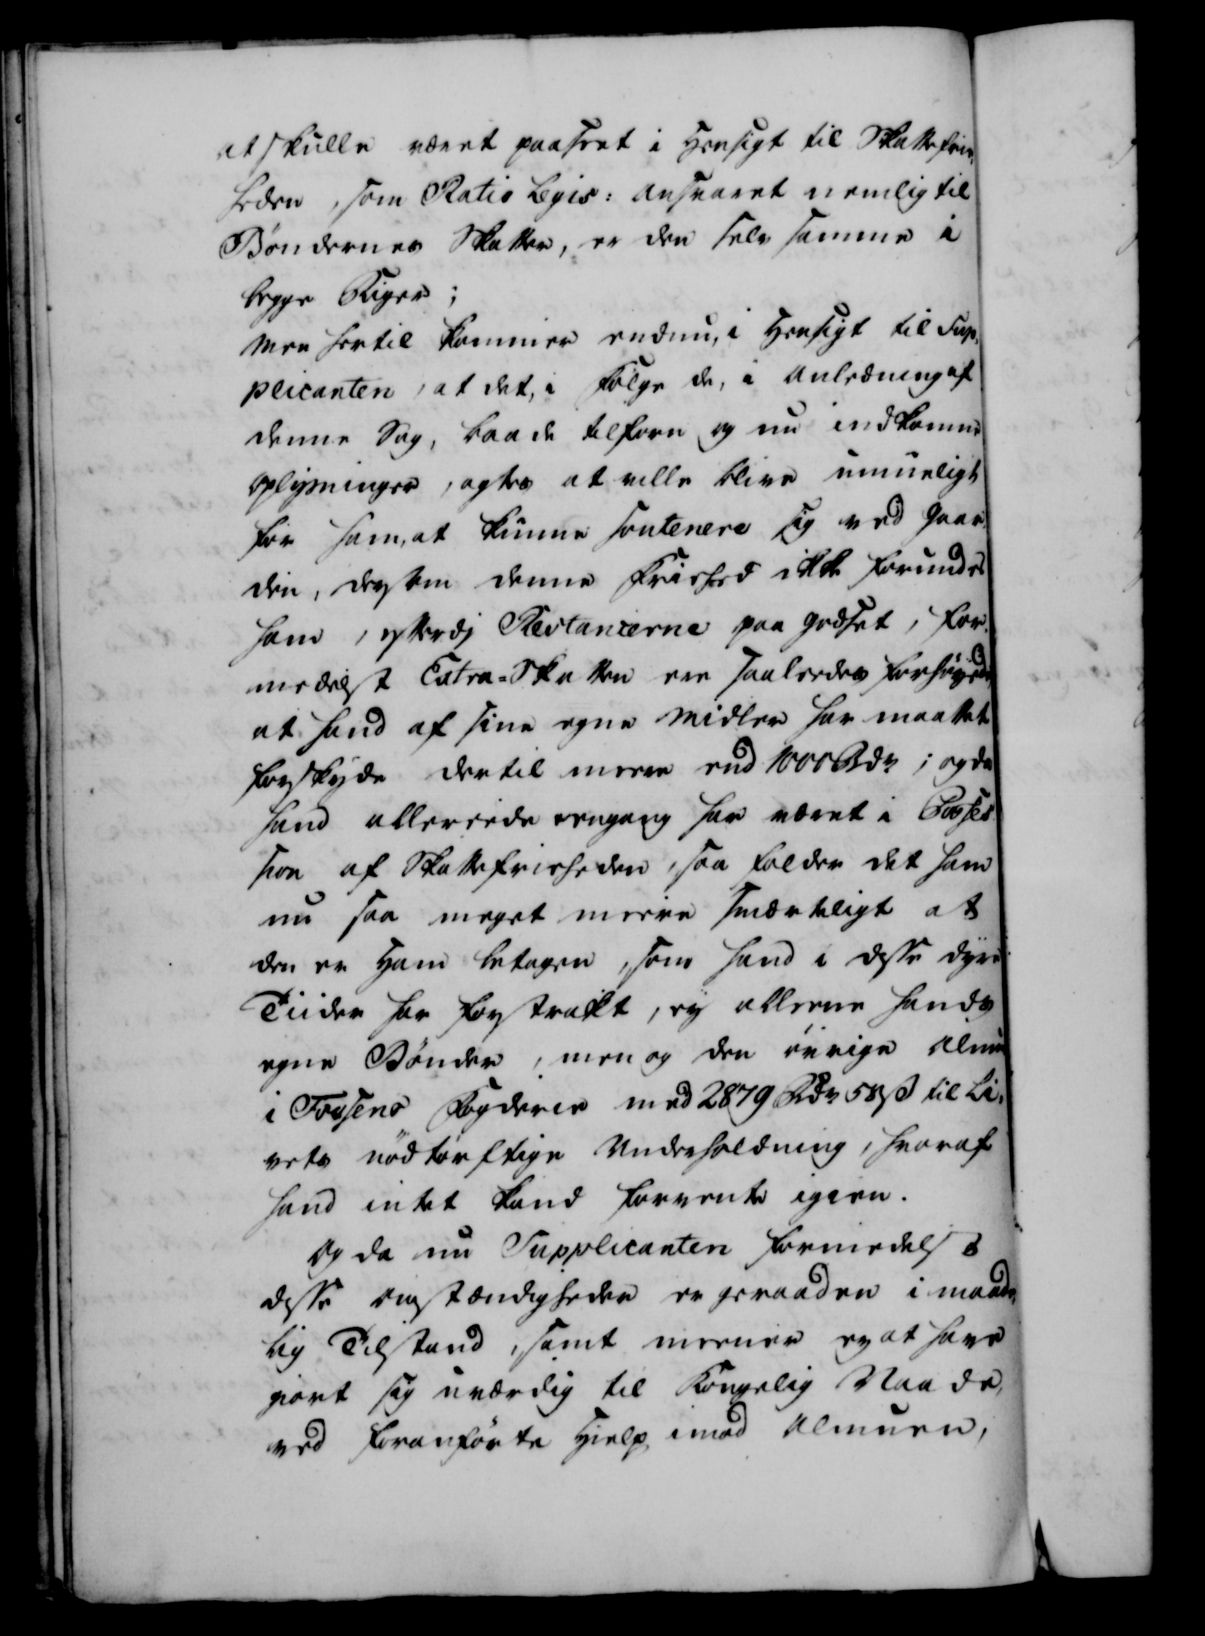 at skulle været paaseet i Hensigt til Skattefrie,,
heden, som Ratio Legis: Ansvaret nemlig til
Bøndernes Skatter, er den selv samme i
begge Riger;
Men hertil kommer endnu, i Hensigt til Sup,,
plicanten, at det, i Følge de, i Anledning af
denne Sag, baade tilforn og nu indkomne
Oplysninger, agtes at ville blive umueligt
for ham, at kunne soutenere sig ved Gaar,,
den, dersom denne Friehed ikke forundes
ham, efterdj Restancerne paa Godset, for,,
medelst Extra-Skatten ere saaledes forhøyede,
at hand af sine egne Midler har maattet
forskyde dertil meere end 1000 Rdr; og da
hand allereede eengang har været i Posses
sion af Skattefrieheden, saa falder det ham
nu saa meget meere smerteligt at
den er Ham betagen, som hand i disse dyre
Tiider har forstrakt, ey alleene hands
egne Bønder, men og den øvrige Almue
i Fosens Fogderie med 2879 Rdr 58 ß til Li,,
vets nødtørftige Underholdning, hvoraf
hand intet kand forvente igien.
Og da nu Supplicanten formedelst
disse Omstændigheder er geraaden i maade,,
lig Tilstand, samt meener ey at have
giort sig uværdig til Kongelig Naade,
ved foranførte Hielp imod Almuen,